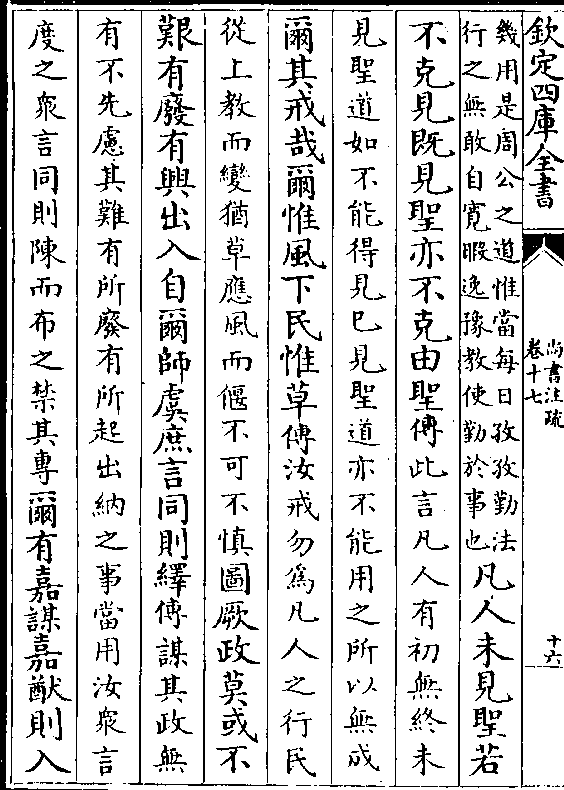 欽定四庫全書
尚書注疏
卷十七
十六
幾用是周公之道惟當每日孜孜勤法
行之無敢自寬暇逸豫教使勤於事也
凡人未見聖若
不克見既見聖亦不克由聖傳此言凡人有初無終未
見聖道如不能得見已見聖道亦不能用之所以無成
爾其戒哉爾惟風下民惟草傳汝戒勿為凡人之行民
從上教而變猶草應風而偃不可不慎圖厥政莫或不
艱有廢有興出入自爾師虞庶言同則繹傳謀其政無
有不先慮其難有所廢有所起出納之事當用汝衆言
度之衆言同則陳而布之禁其專爾有嘉謀嘉猷則入